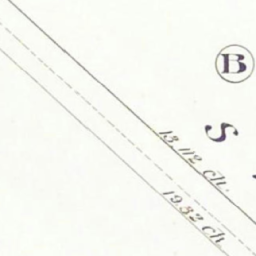 B
S
13.112 Ch.
19.32 Ch.